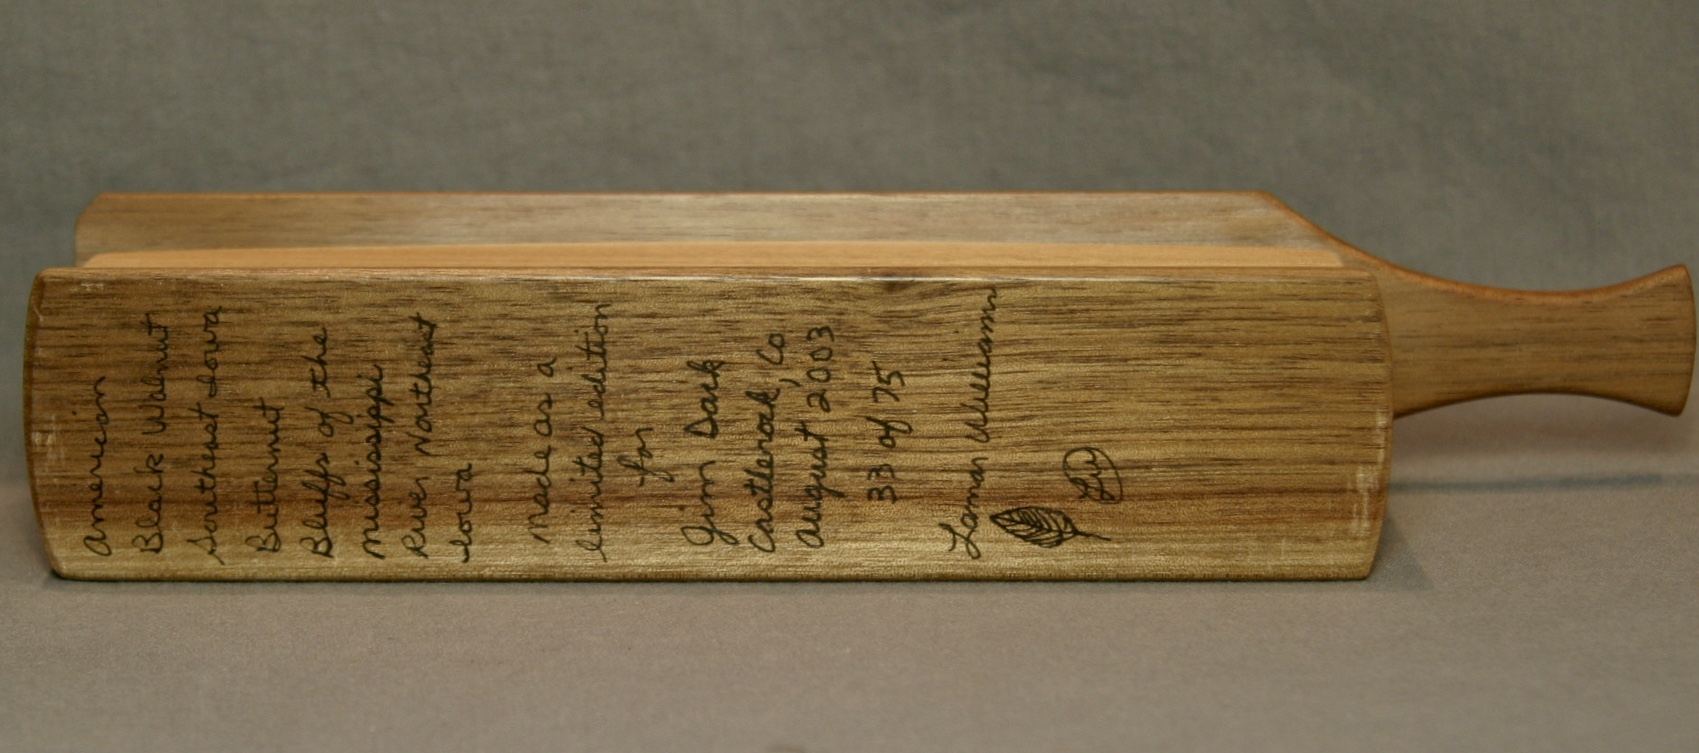 American
Black Walnut
Southeast Iowa
Butternut
Bluffs of the
Mississippi
River Northeast
Iowa
Made as a
limited edition
for
Jim Dark
Castlerock, Co
August 2003
33 of 75
Laman Williams
LW